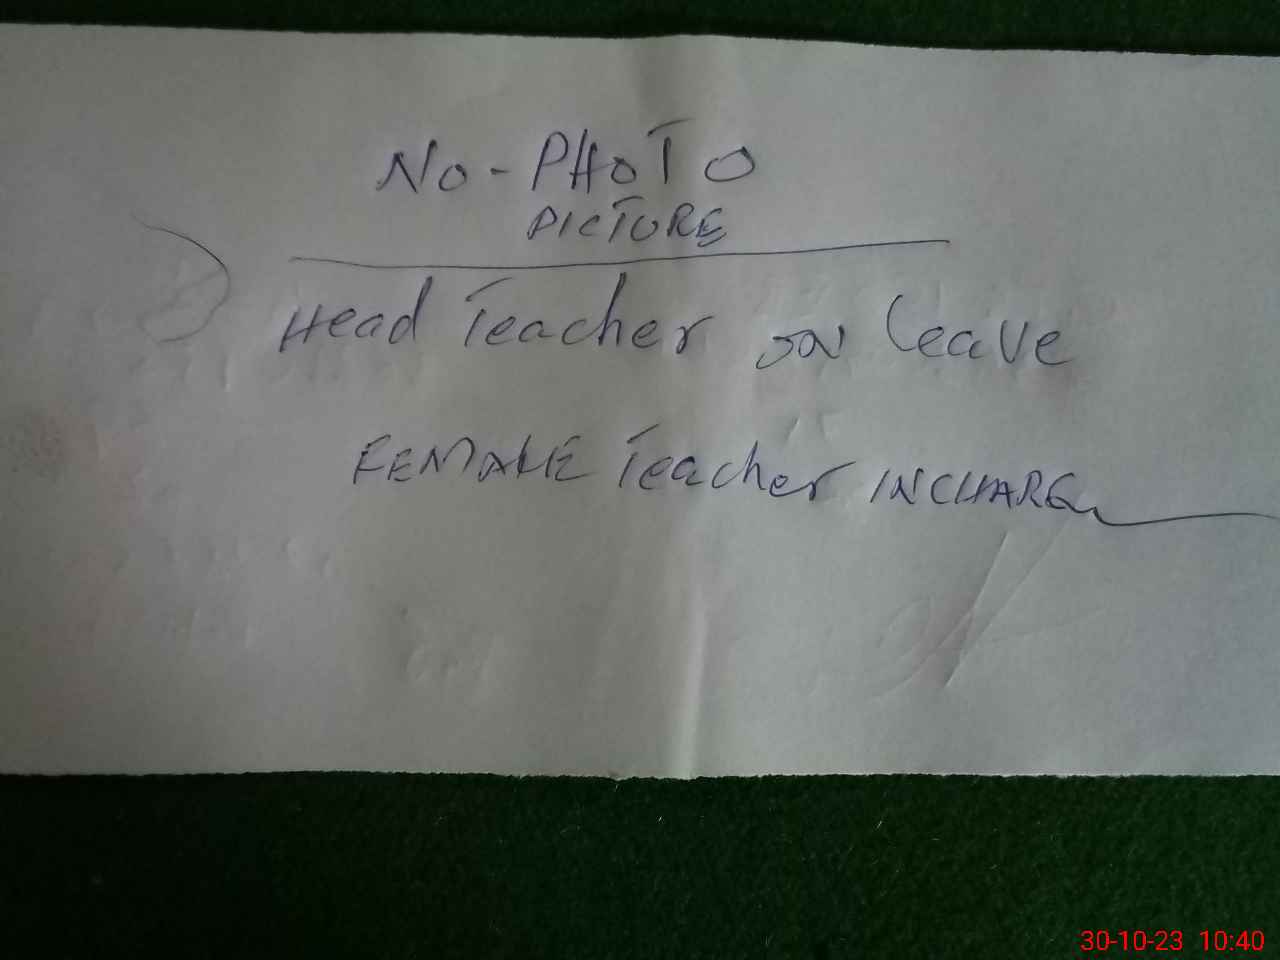 No-PHOTO
PICTURE
Head Teacher on leave
FEMALE Teacher INCHARGE
30-10-23 10:40